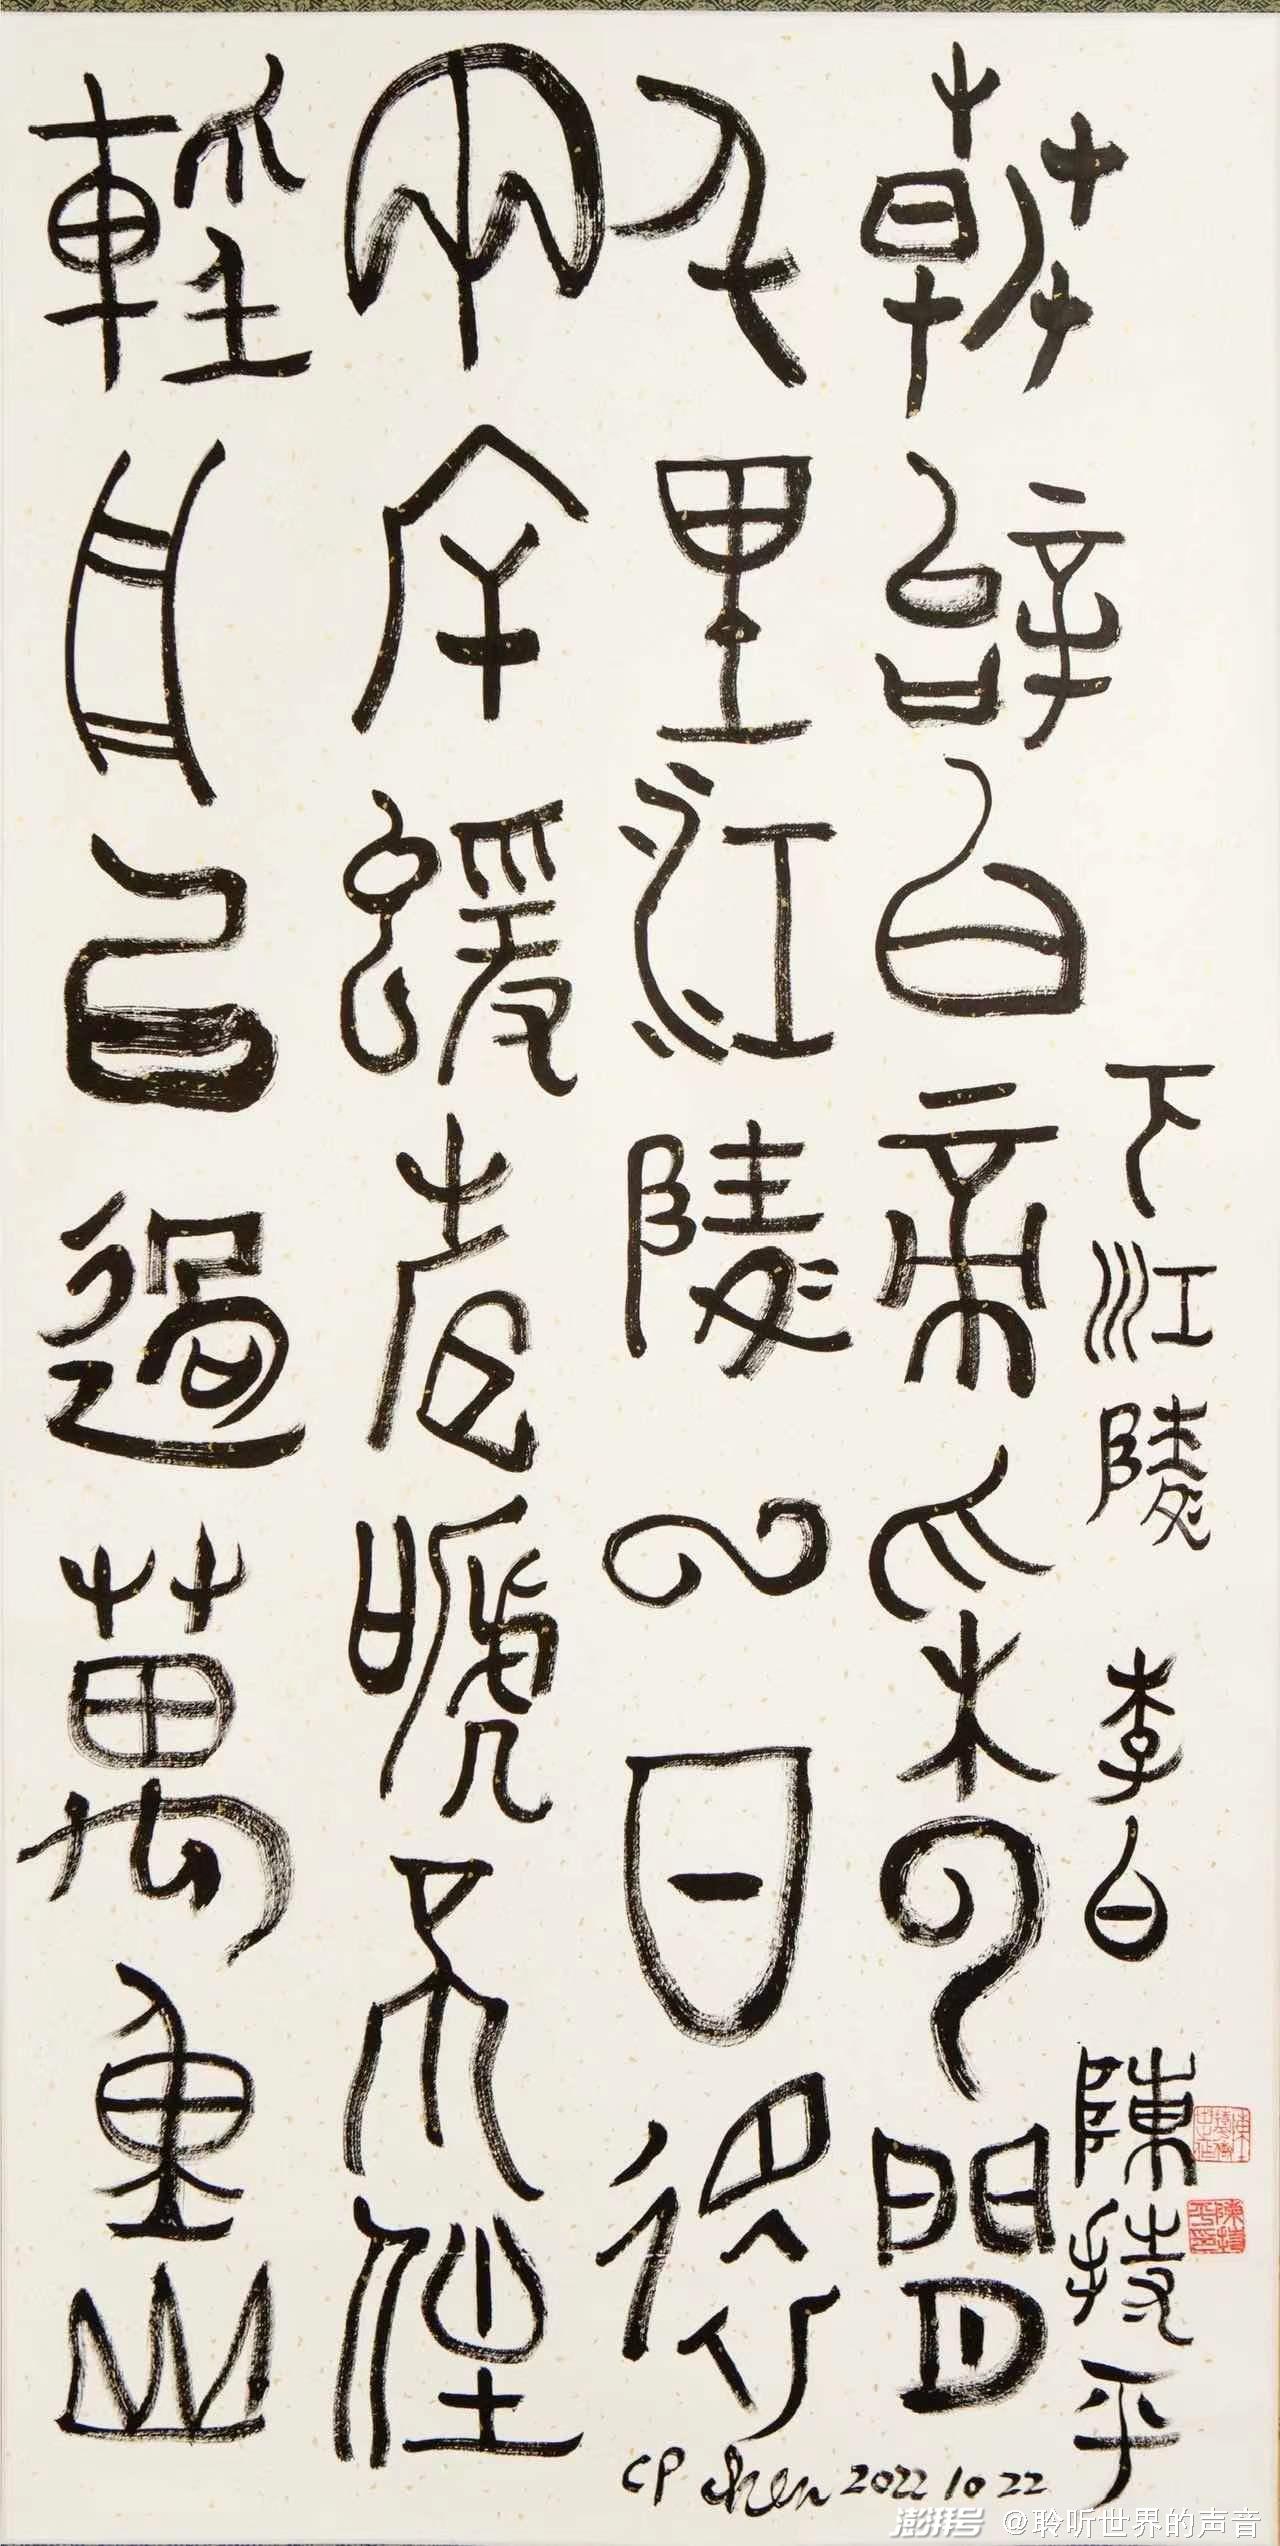 下江陵 李白 陳持平
朝辝白帝采云閒
千里江陵一日還
兩岸蝯聲嗁不住
輕舟已過萬重山
CP Chen 2022 10 22
澎湃号 @聆听世界的声音